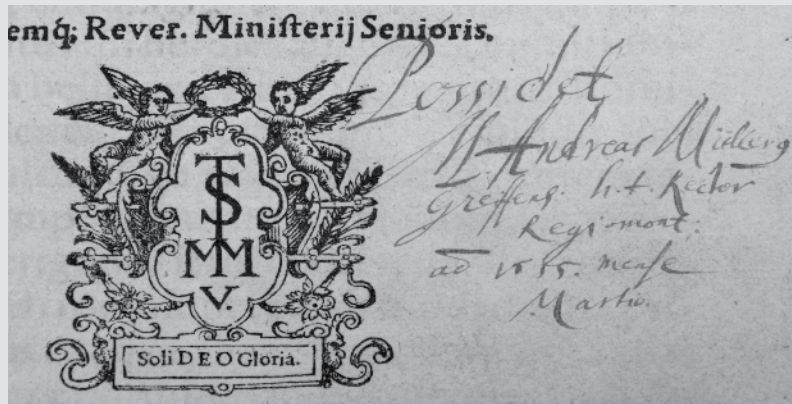 emq́; Rever. Miniſterij Senioris.
TS
MM
V.
Soli DEO Gloria.
Possidet
M. Andreas
Greiffens. h. t. Rector
Regiomont:
aō mense
Martio.